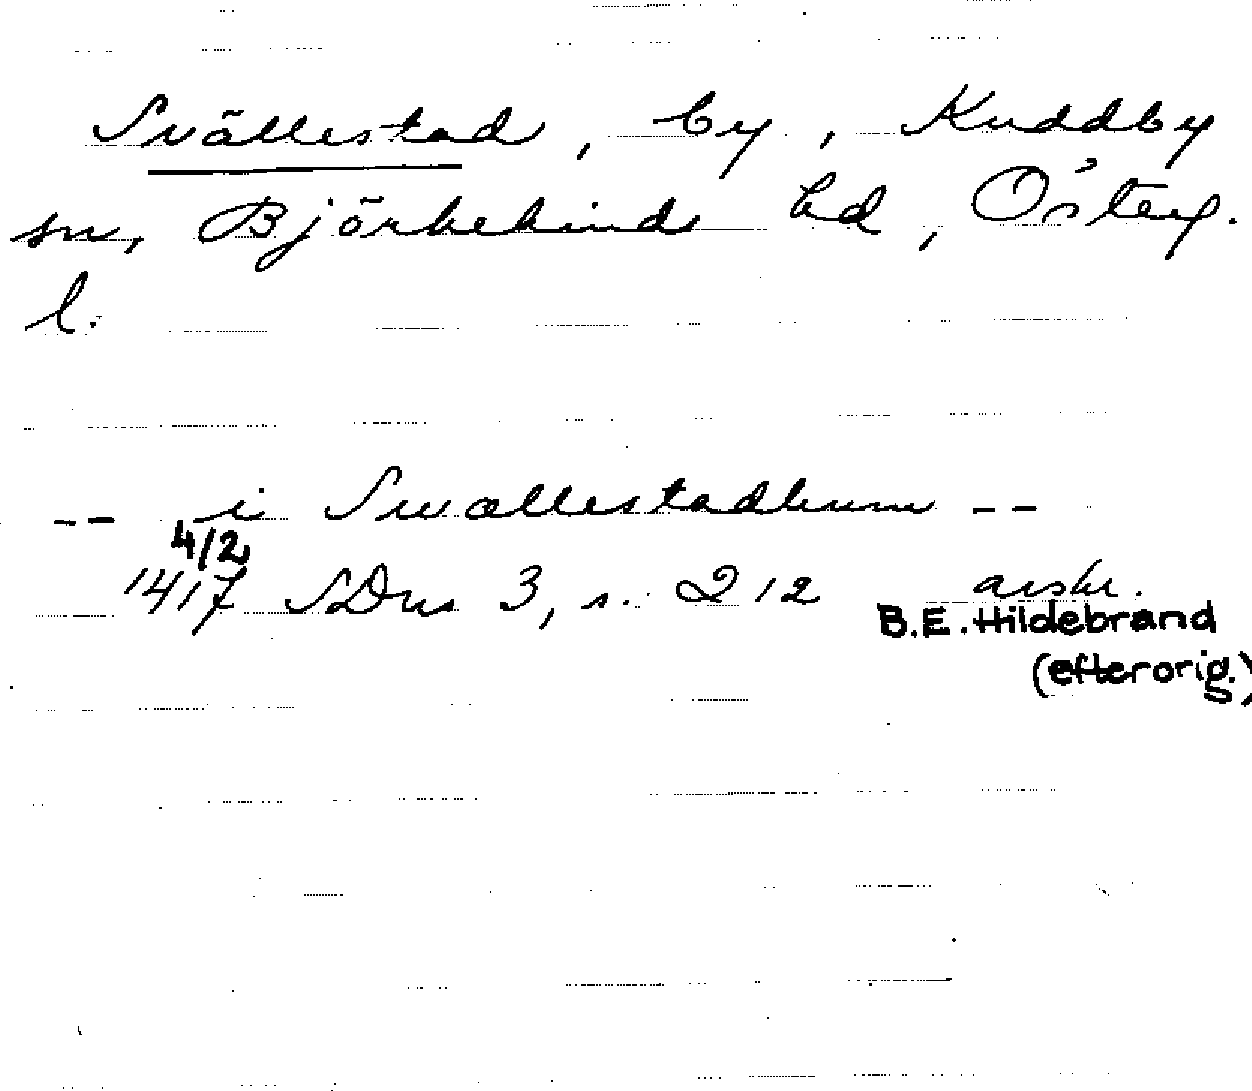 Svällestad, by, Kuddby
sn, Björkekind hd, Österg.
l.
-- i Swællestadhum --
4/2
1417 SDns 3, s. 212 avskr.
B.E. Hildebrand
(efter orig.)